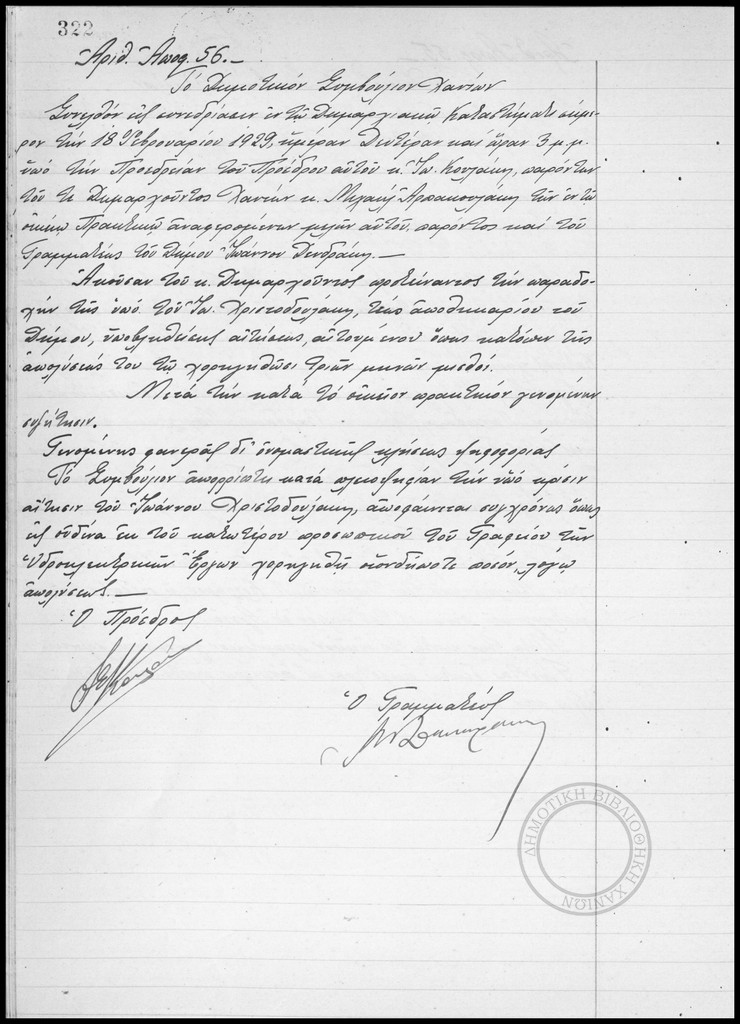 322
Ἀριθ. Ἀποφ. 56.—
Τό Δημοτικόν Συμβούλιον Χανίων
Συνελθόν εἰς συνεδρίασιν ἐν τῷ Δημαρχιακῷ Καταστήματι σήμε-
ρον τήν 18 Φεβρουαρίου 1929, ἡμέραν Δευτέραν καί ὥραν 3 μ.μ.
ὑπό τήν Προεδρείαν τοῦ Προέδρου αὐτοῦ κ. Ἰω. παρόντων
τοῦ τε Δημαρχοῦντος Χανίων κ. Μιχαήλ τῶν ἐν τῷ
οἰκείῳ Πρακτικῷ ἀναφερομένων μελῶν αὐτοῦ, παρόντος καί τοῦ
Γραμματέως τοῦ Δήμου Ἰωάννου
Ἀκοῦσαν τοῦ κ. Δημαρχοῦντος προτείναντος τήν παραδο-
χήν τῆς ὑπό τοῦ Ἰω. Χριστοδουλάκη, τέως ἀποθηκαρίου τοῦ
Δήμου, ὑποβληθείσης αἰτήσεως, αἰτουμένου ὅπως κατόπιν τῆς
ἀπολύσεώς του τῷ χορηγηθῶσι τριῶν μηνῶν μισθοί.
Μετά τήν κατά τό οἰκεῖον πρακτικόν γενομένην
συζήτησιν.
Γενομένης φανερᾶς δι' ὀνομαστικῆς κλήσεως ψηφοφορίας
Τό Συμβούλιον ἀπορρίπτει κατά πλειοψηφίαν τήν ὑπό κρίσιν
αἴτησιν τοῦ Ἰωάννου Χριστοδουλάκη, ἀποφαίνεται συγχρόνως ὅπως
εἰς οὐδένα ἐκ τοῦ κατωτέρου προσωπικοῦ τοῦ Γραφείου τῶν
Ὑδροηλεκτρικῶν Ἔργων χορηγηθῇ οἱονδήποτε ποσόν, λόγῳ
ἀπολύσεως.—
Ὁ Πρόεδρος
Ὁ Γραμματεύς
ΔΗΜΟΤΙΚΗ ΒΙΒΛΙΟΘΗΚΗ ΧΑΝΙΩΝ